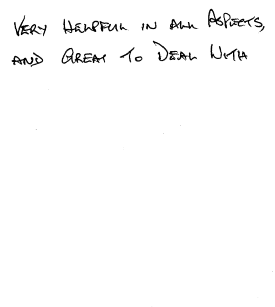 VERY HELPFUL IN ALL ASPECTS,
AND GREAT TO DEAL WITH